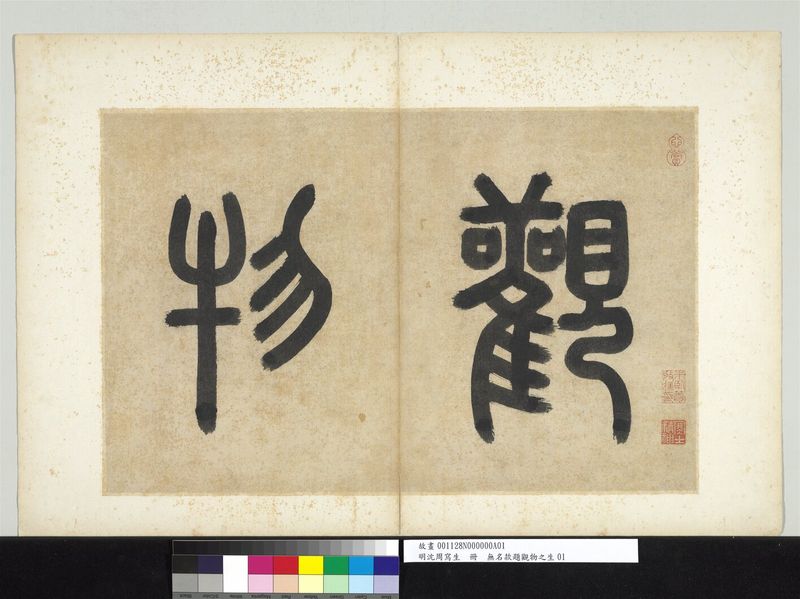 觀
物
故畫 001128N000000A01
明沈周寫生 冊 無名款題觀物之生 01